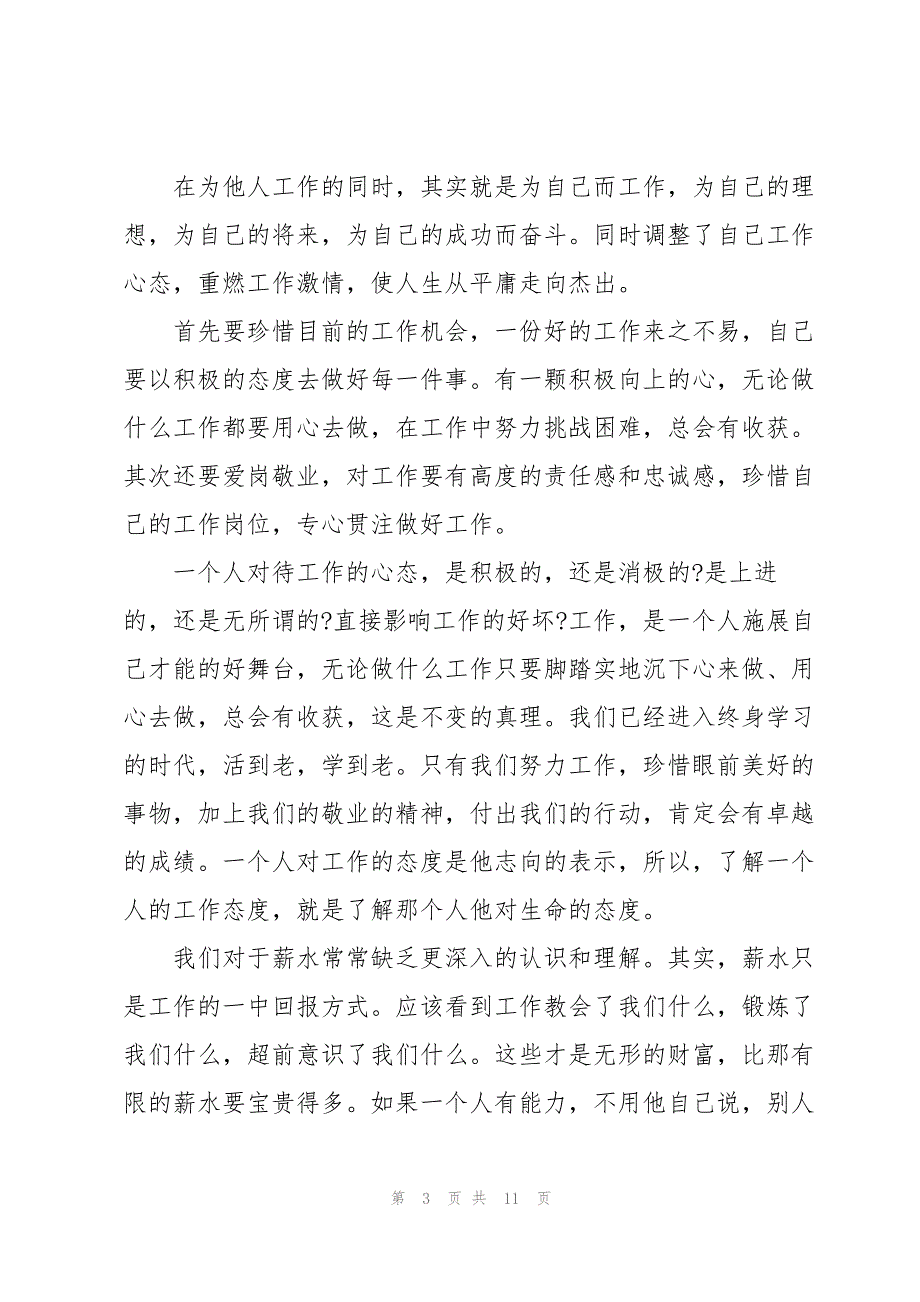 在为他人工作的同时，其实就是为自己而工作，为自己的理
想，为自己的将来，为自己的成功而奋斗。同时调整了自己工作
心态，重燃工作激情，使人生从平庸走向杰出。
首先要珍惜目前的工作机会，一份好的工作来之不易，自己
要以积极的态度去做好每一件事。有一颗积极向上的心，无论做
什么工作都要用心去做，在工作中努力挑战困难，总会有收获。
其次还要爱岗敬业，对工作要有高度的责任感和忠诚感，珍惜自
己的工作岗位，专心贯注做好工作。
一个人对待工作的心态，是积极的，还是消极的?是上进
的，还是无所谓的?直接影响工作的好坏?工作，是一个人施展自
己才能的好舞台，无论做什么工作只要脚踏实地沉下心来做、用
心去做，总会有收获，这是不变的真理。我们已经进入终身学习
的时代，活到老，学到老。只有我们努力工作，珍惜眼前美好的
事物，加上我们的敬业的精神，付出我们的行动，肯定会有卓越
的成绩。一个人对工作的态度是他志向的表示，所以，了解一个
人的工作态度，就是了解那个人他对生命的态度。
我们对于薪水常常缺乏更深入的认识和理解。其实，薪水只
是工作的一中回报方式。应该看到工作教会了我们什么，锻炼了
我们什么，超前意识了我们什么。这些才是无形的财富，比那有
限的薪水要宝贵得多。如果一个人有能力，不用他自己说，别人
第 3 页 共 11 页